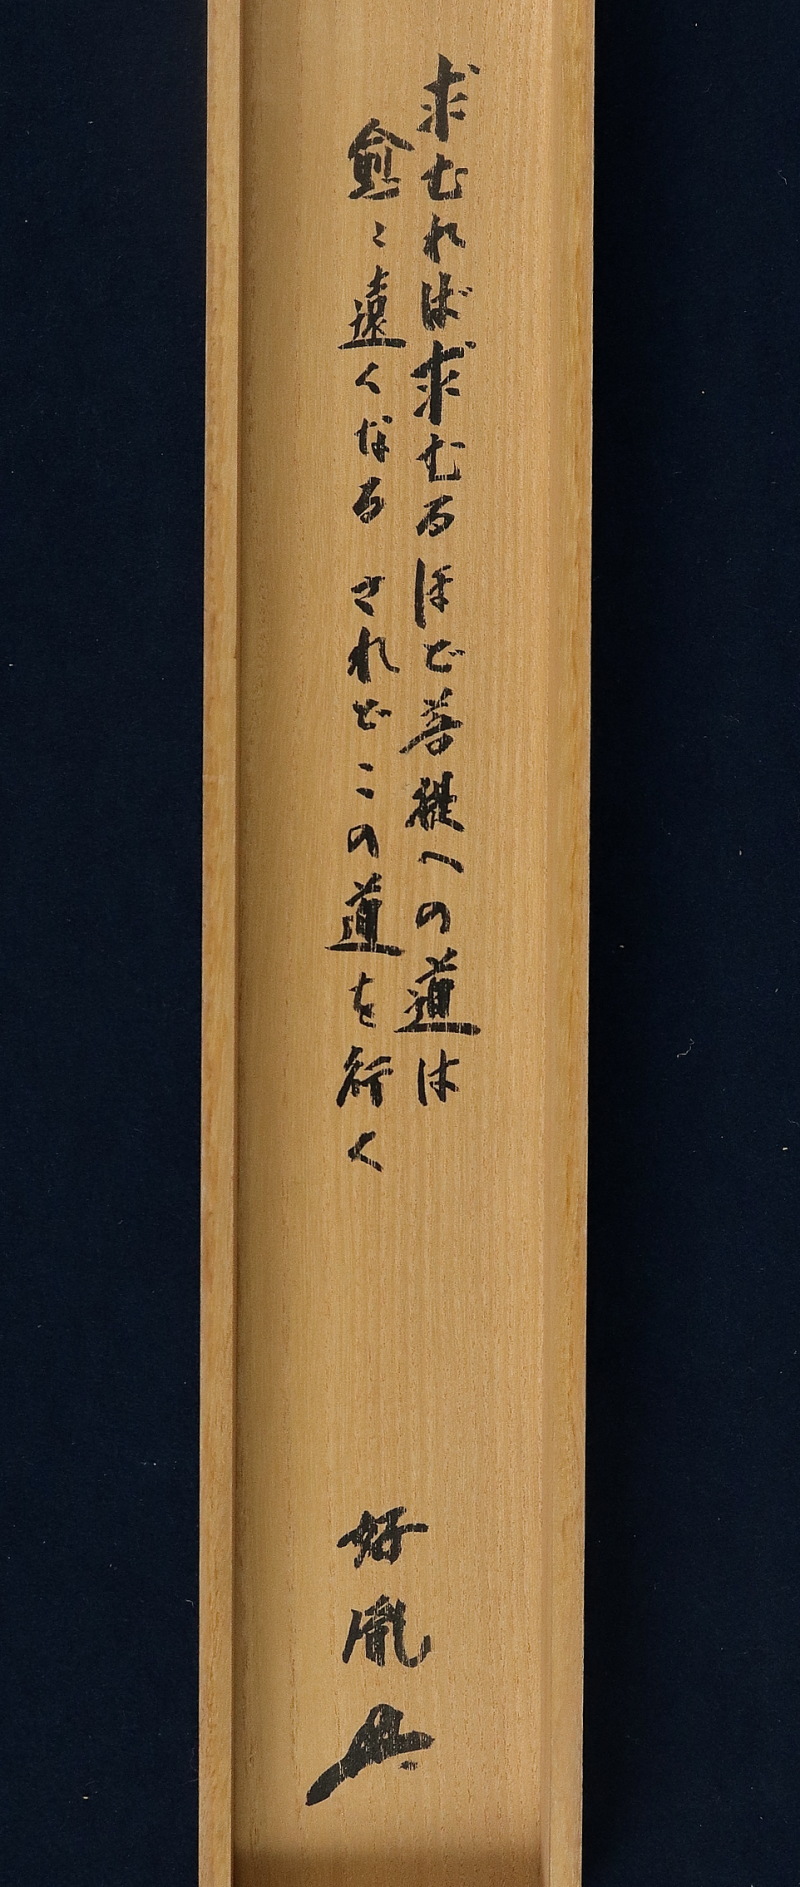 求むれば求むるほど菩提への道は
愈々遠くなる されどこの道を行く
好胤